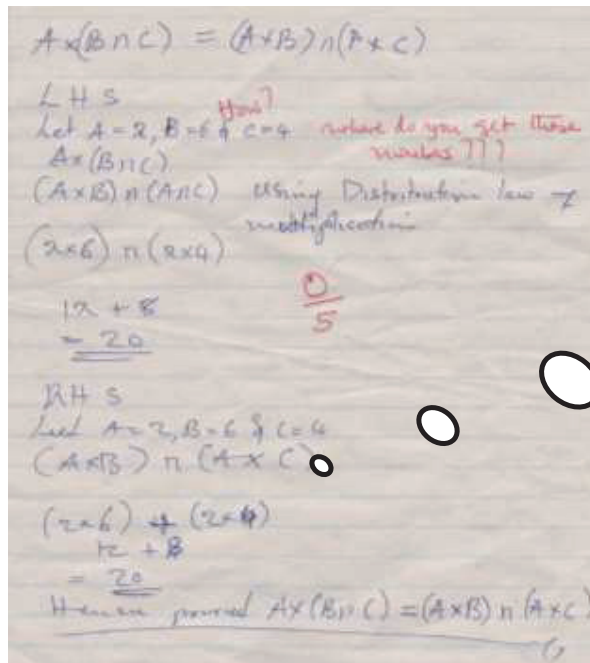 A×(B∩C) = (A×B)∩(A×C)
LHS
How?
Let A=2, B=6 & C=4 where do you get these
A×(B∩C)
(A×B)∩(A∩C) Using Distribution law
multiplication
(2×6)∩(2×4)
12 + 8
= 20
0/5
RHS
Let A=2, B=6 & C=4
(A×B)∩(A×C)
(2×6)+(2×4)
12 + 8
= 20
proved A×(B∩C)=(A×B)∩(A×C)